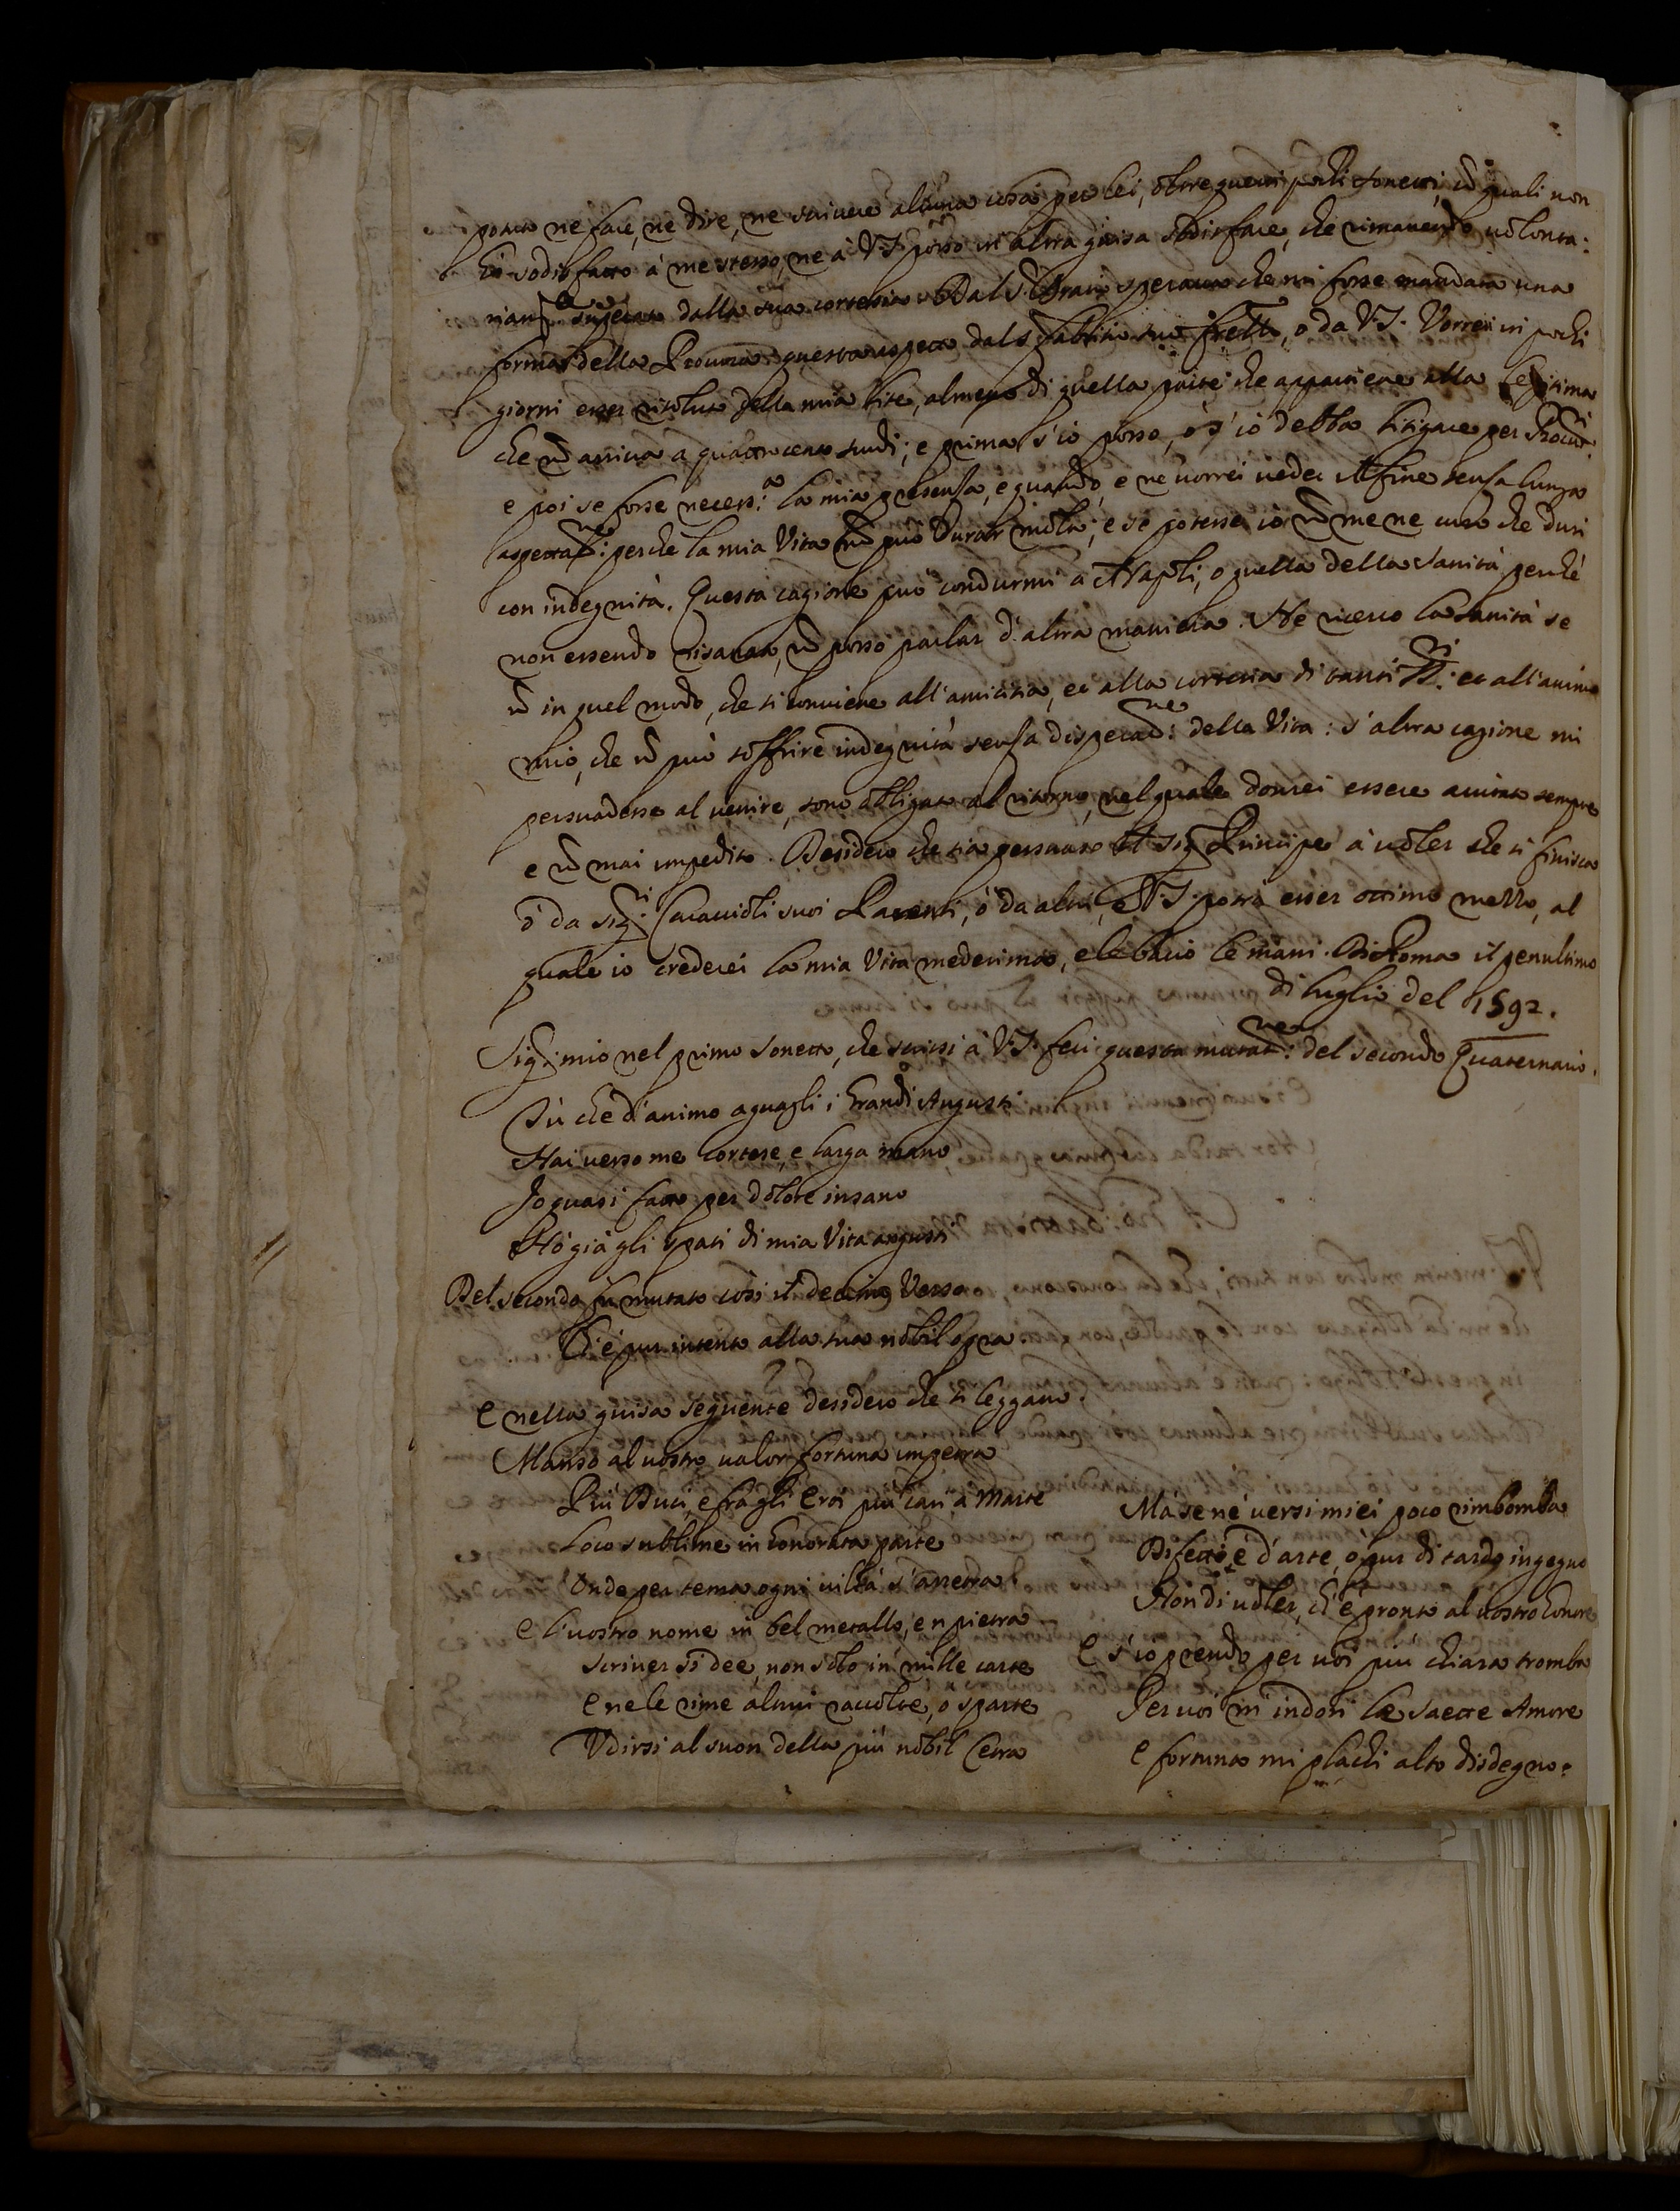 potuto ne fare, ne dire, ne scriuere alcuna cosa per lei, oltre questi pochi sonetti, cõ quali non
hò sodisfatto à me stesso, ne à V.S. posso in altra guisa sodisfare, che rimanendo uolonta:
riam.te superato dalla sua cortesia. Dal S. Horatio speraua che mi fosse mandata una
forma della Procura: questa aspetto dal S. Fabritio suo frełło, o da V.S. Vorrei in pochi
giorni esser risoluto della mia lite, almeno di quella parte che appartiene alla legitima
che nõ arriua a quattrocento scudi; e prima s'io posso, ò s'io debba litigare per Procur.
e poi se fosse necess.a la mia presenza, e quando, e ne uorrei ueder il fine senza lunga
aspettat.ne: perche la mia Vita nõ può durar molto; e se potesse io nõ me ne curo che duri
con indegnità. Questa cagione può condurmi à Napoli, o quella della sanità perche
non essendo risanato, nõ posso parlar d'altra maniera. Ne ricerco la sanità se
nõ in quel modo, che si conuiene all'amicitia, et alla cortesia di tanti SS.ri et all'animo
mio, che nõ può soffrire indegnità senza disperat.ne della Vita: s'altra cagione mi
persuadesse al uenire, sono obligato al ritorno, nel quale dourei essere aiutato sempre
e nõ mai impedito. Desidero che sia persuaso il Sig. Principe à uoler che si finisca
ò da Sig.ri Caraccioli suoi Parenti, ò da altri, e V.S. potrà esser ottimo mezzo, al
quale io crederei la mia Vita medesima, e le bacio le mani. Di Roma il penultimo
di luglio del 1592.
Sig. mio nel primo sonetto, che scrissi à V.S. feci questa mutat.ne: del secondo Quaternario.
Tù che d'animo aguagli i Grandi Augusti
Hai uerso me cortese, e larga mano
Io quasi fatto per dolore insano
Hò già gli spati di mia Vita angusti
Del secondo fù mutato così il decimo Verso
Ch'è pur intento alla tua nobil opra
E nella guisa seguente desidero che si leggano.
Manso al uostro ualor fortuna impetra
Frà Duci, e frà gli Eroi più cari à Marte
Loco sublime in honorata parte
Onde per tema ogni uiltà s'arretra
E 'l uostro nome in bel metallo, e 'n pietra
Scriuer si dee, non solo in mille carte
E ne le rime altrui raccolte, o sparte
Vdirsi al suon della più nobil Cetra
Ma se ne' uersi miei poco rimbomba
Difetto è d'arte, o pur di tardo ingegno
Non di uoler, ch'è pronto al uostro honore
E s'io prendo per uoi più chiara tromba
Per uoi m'indori le saette Amore
E fortuna mi plachi alto disdegno.